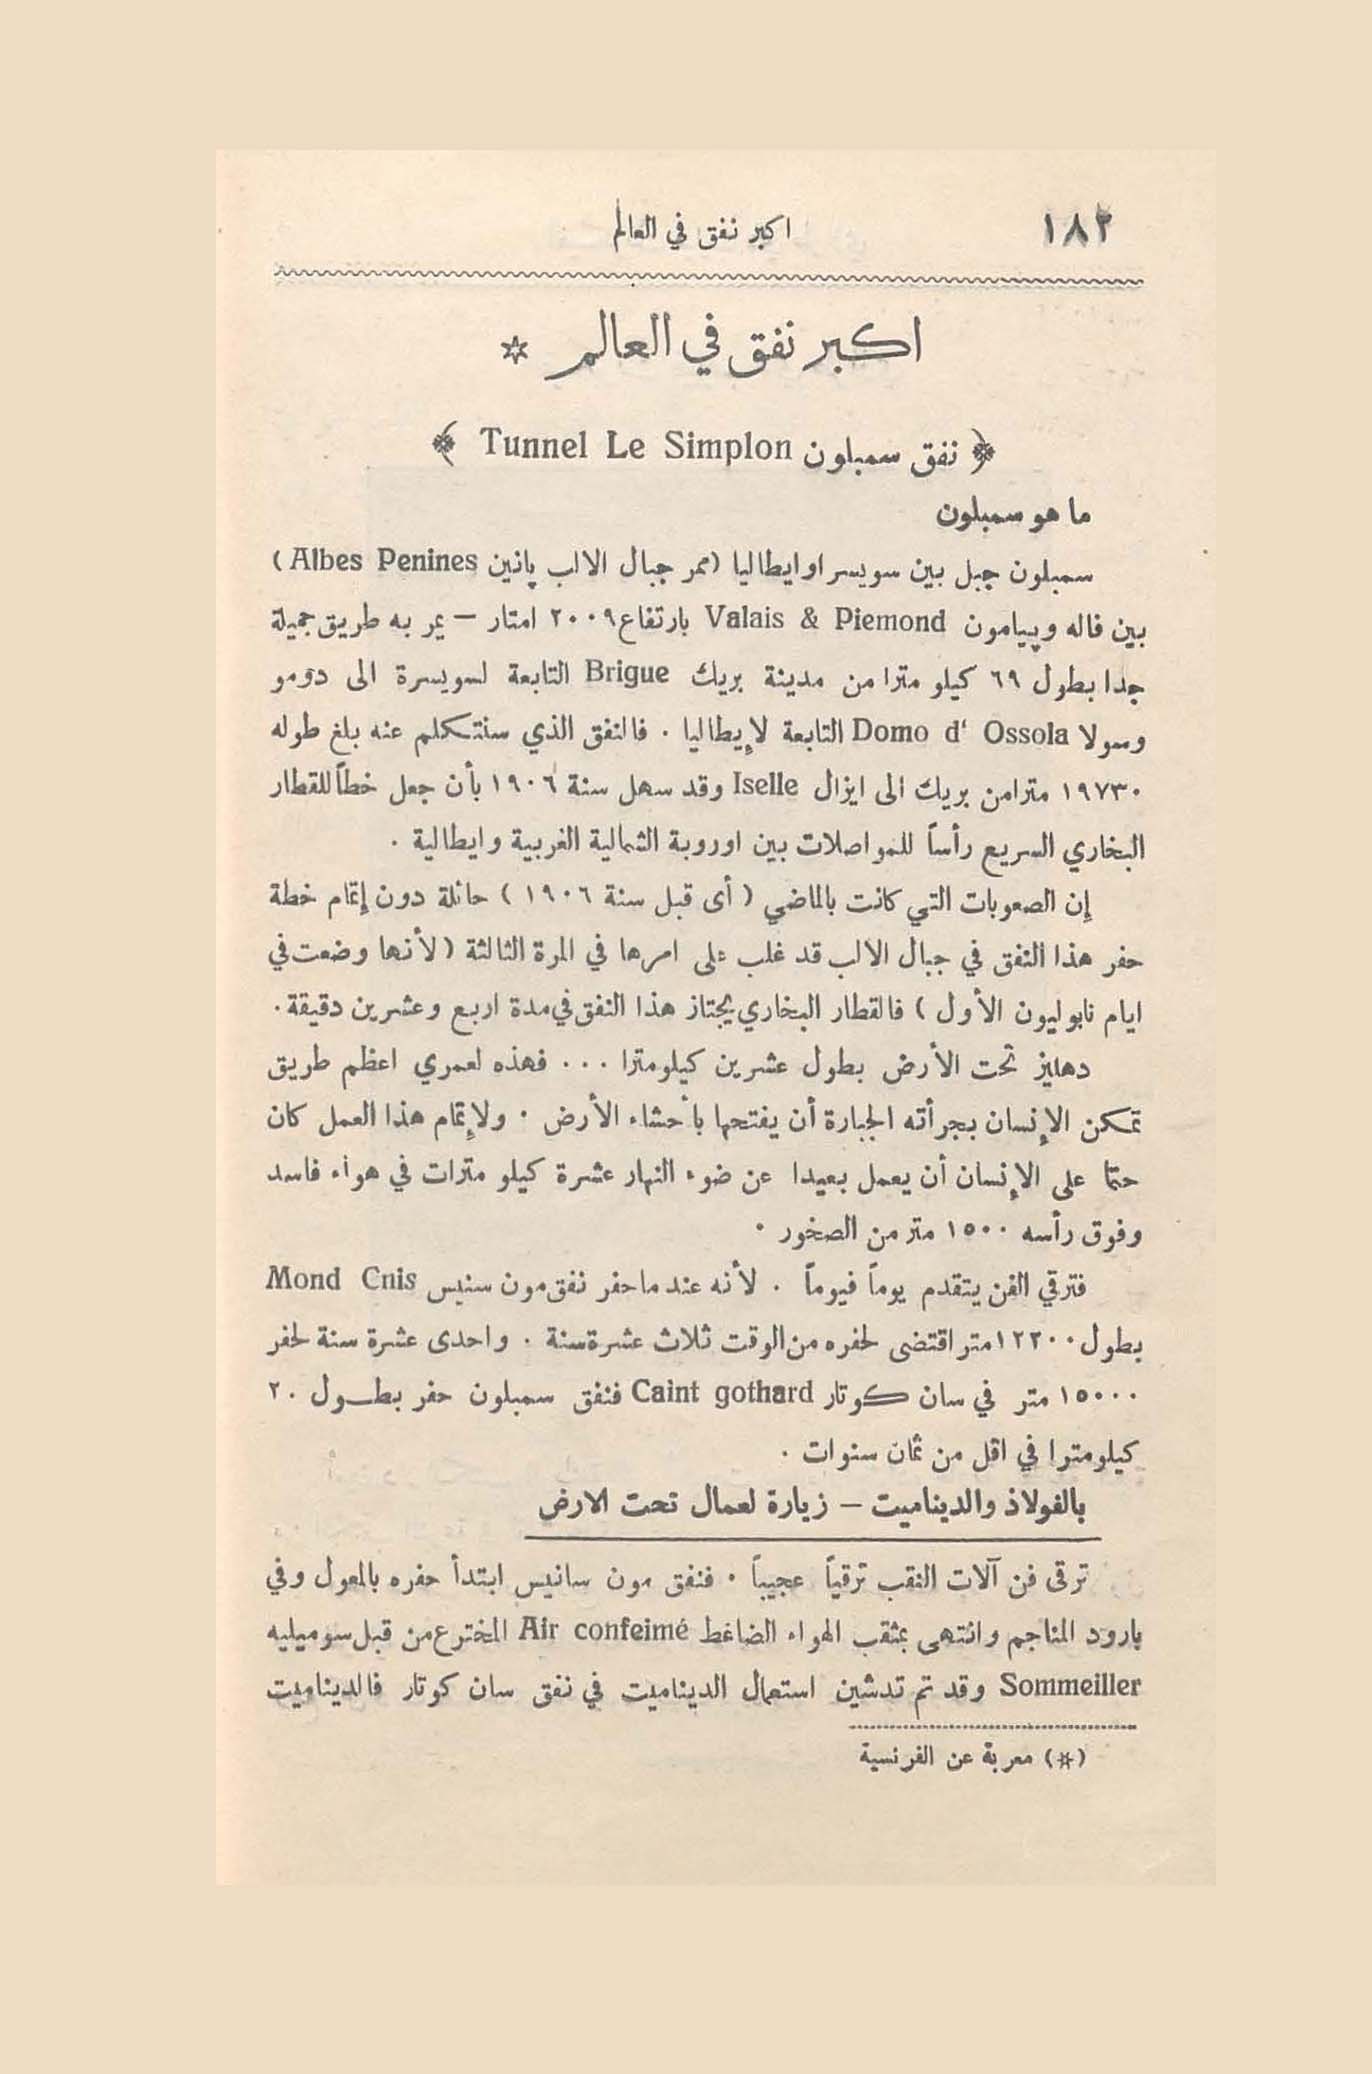 ١٨٢ اكبر نفق في العالم
اكبر نفق في العالم *
﴿ نفق سمبلون Tunnel Le Simplon ﴾
ما هو سمبلون
سمبلون جبل بين سويسرا وايطاليا (ممر جبال الالب پانين Albes Penines )
بين فاله وپيامون Valais & Piemond بارتفاع ٢٠٠٩ امتار – يمر به طريق جميلة
جدا بطول ٦٩ كيلو مترا من مدينة بريك Brigue التابعة لسويسرة الى دومو
وسولا Domo d' Ossola التابعة لإيطاليا . فالنفق الذي سنتكلم عنه بلغ طوله
١٩٧٣٠ مترا من بريك الى ايزال Iselle وقد سهل سنة ١٩٠٦ بأن جعل خطاً للقطار
البخاري السريع رأساً للمواصلات بين اوروبة الشمالية الغربية وايطالية .
إن الصعوبات التي كانت بالماضي ( أى قبل سنة ١٩٠٦ ) حائلة دون إتمام خطة
حفر هذا النفق في جبال الالب قد غلب على امرها في المرة الثالثة ( لأنها وضعت في
ايام نابوليون الأول ) فالقطار البخاري يجتاز هذا النفق في مدة اربع وعشرين دقيقة .
دهليز تحت الأرض بطول عشرين كيلومترا ... فهذه لعمري اعظم طريق
تمكن الإنسان بجرأته الجبارة أن يفتحها بأحشاء الأرض . ولإتمام هذا العمل كان
حتما على الإنسان أن يعمل بعيدا عن ضوء النهار عشرة كيلو مترات في هواء فاسد
وفوق رأسه ١٥٠٠ متر من الصخور .
فترقي الفن يتقدم يوماً فيوماً . لأنه عند ما حفر نفق مون سنيس Mond Cnis
بطول ١٢٢٠٠ متر اقتضى لحفره من الوقت ثلاث عشرة سنة . واحدى عشرة سنة لحفر
١٥٠٠٠ متر في سان كوتار Caint gothard فنفق سمبلون حفر بطول ٢٠
كيلومترا في اقل من ثمان سنوات .
بالفولاذ والديناميت – زيارة لعمال تحت الارض
ترقى فن آلات النقب ترقياً عجيباً . فنفق مون سانيس ابتدأ حفره بالمعول وفي
بارود المناجم وانتهى بمثقب الهواء الضاغط Air confeimé المخترع من قبل سوميليه
Sommeiller وقد تم تدشين استعمال الديناميت في نفق سان كوتار فالديناميت
(*) معربة عن الفرنسية